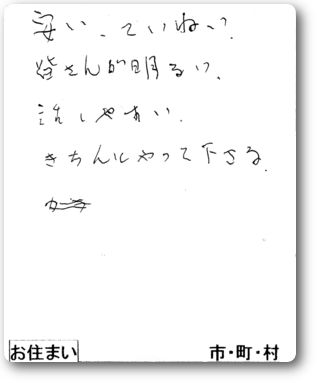 安い、ていねい?
皆さんが明るい、
話しやすい、
きちんとやって下さる、
お住まい 市・町・村